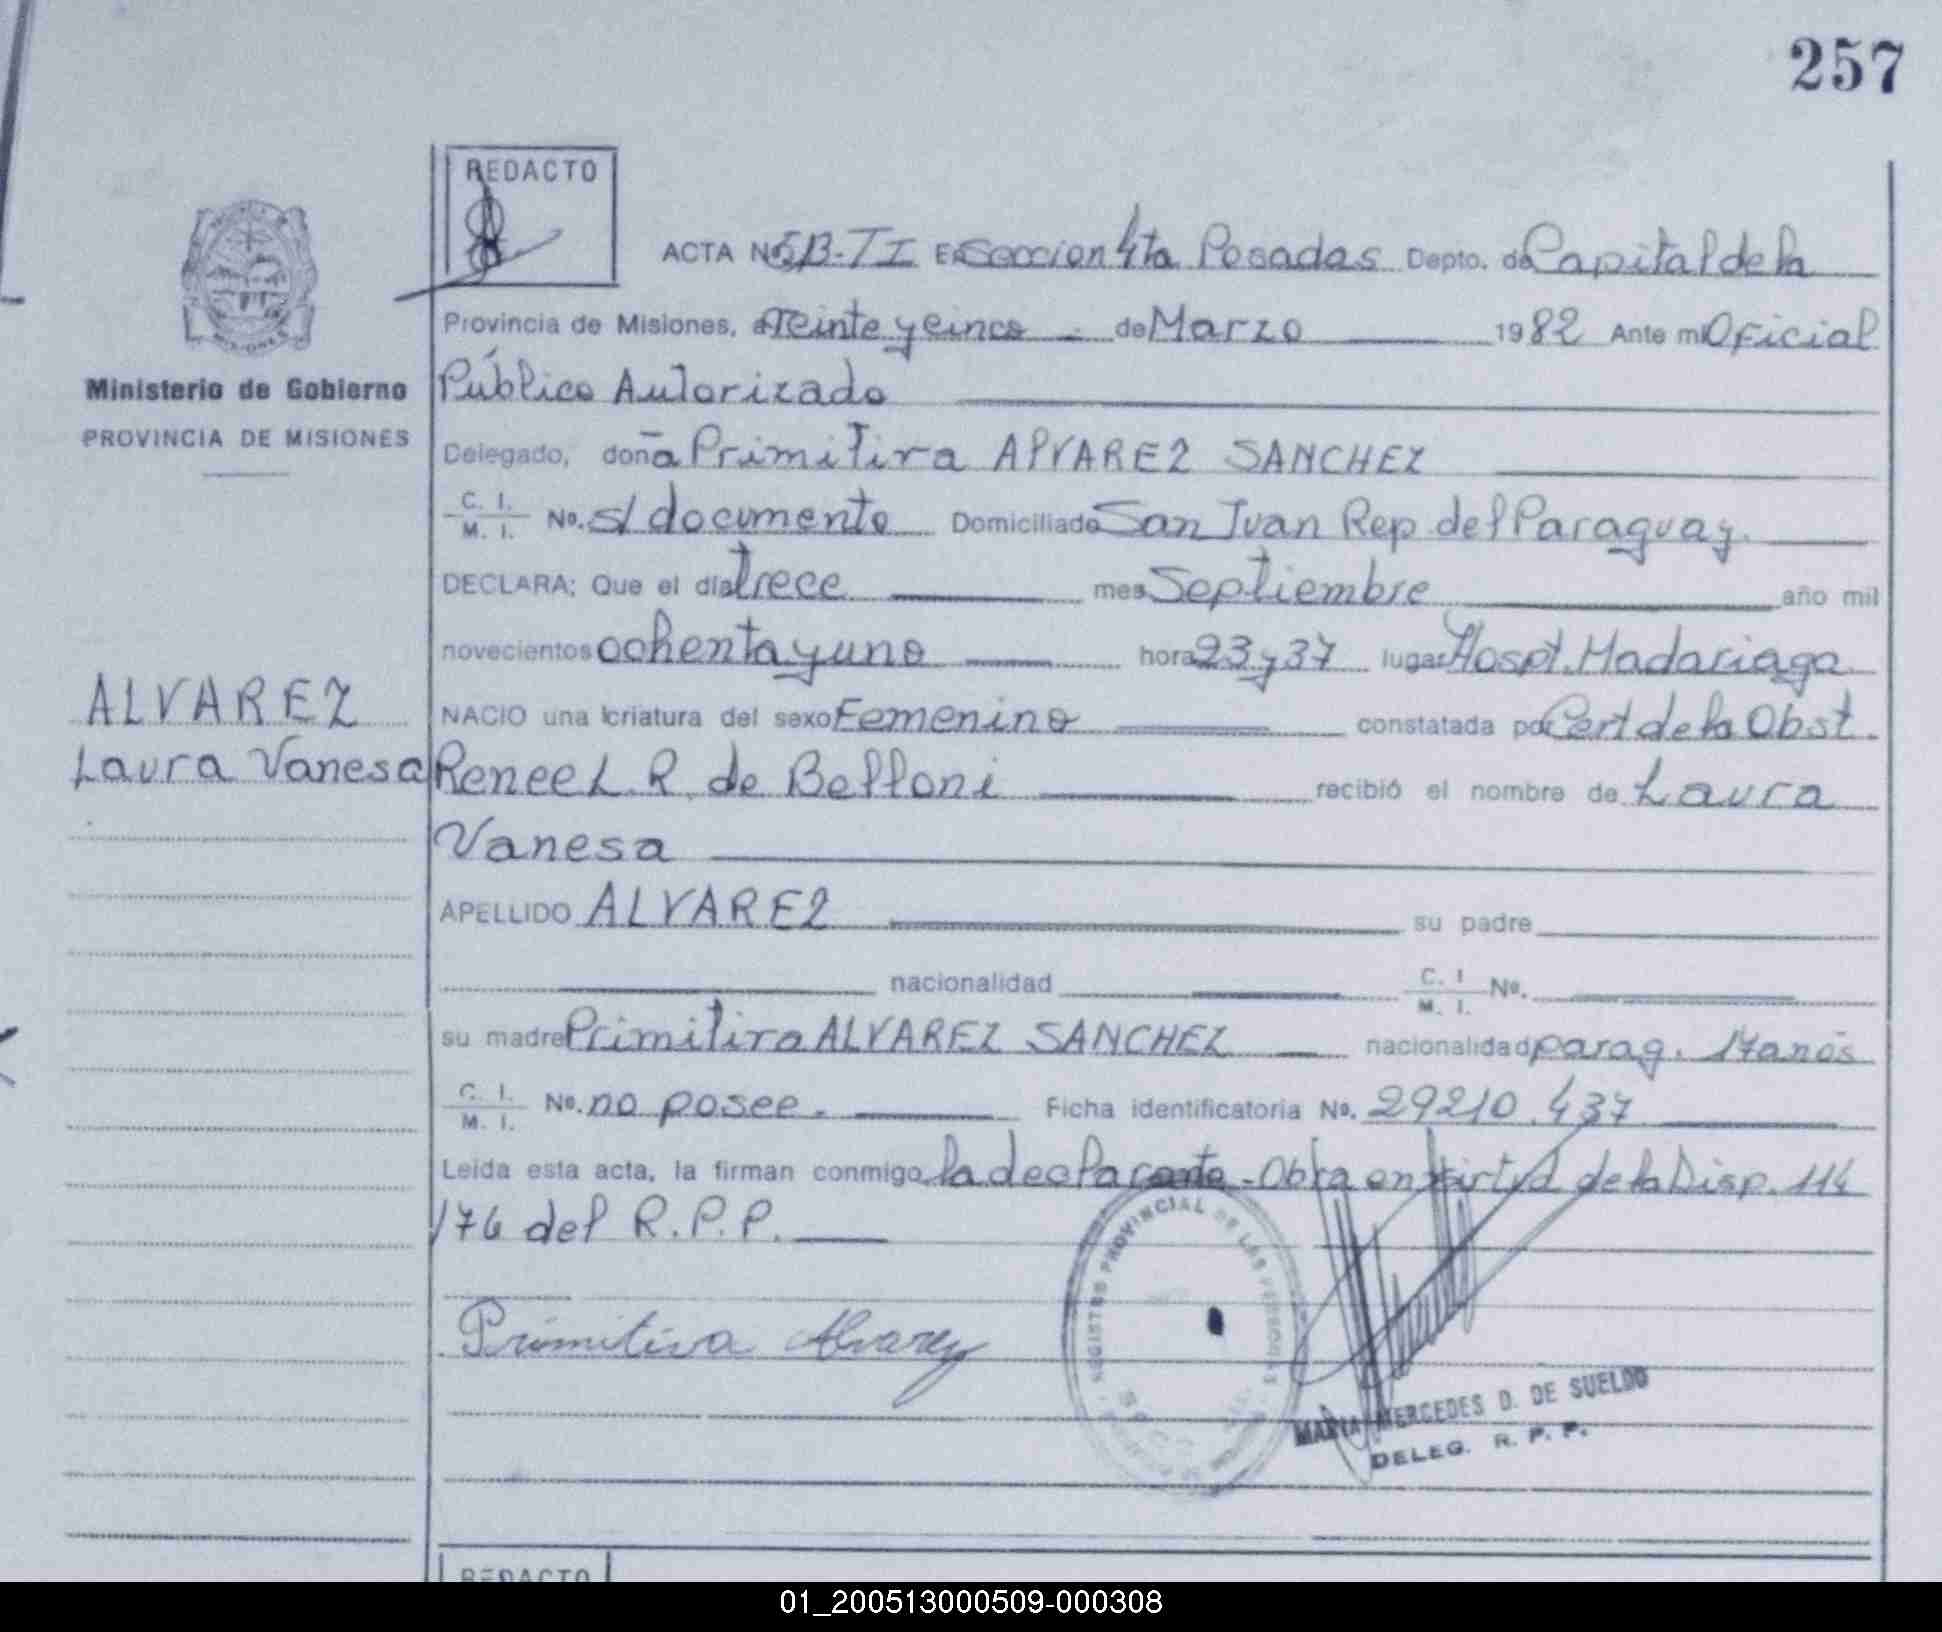 257
REDACTO
ACTA Nº 5B-TI En Seccion 4ta Posadas Depto. de Capital de la
Provincia de Misiones, a Veinte y cinco - de Marzo 1982 Ante mi Oficial
Ministerio de Gobierno
Público Autorizado
PROVINCIA DE MISIONES
Delegado, doña Primitiva ALVAREZ SANCHEZ
C. I. M. I. No. s/ documento Domiciliado San Juan Rep. del Paraguay.
DECLARA: Que el día trece mes Septiembre año mil
novecientos ochenta y uno hora 23 y 37 lugar Hospt. Madariaga
ALVAREZ
NACIO una criatura del sexo Femenino constatada por Cert de la Obst.
Laura Vanesa
Renee L. R. de Belloni recibió el nombre de Laura
Vanesa
APELLIDO ALVAREZ su padre
nacionalidad C. I M. I. Nº.
su madre Primitiva ALVAREZ SANCHEZ nacionalidad parag. 17 anõs
C. I. M. I. Nº. no posee. Ficha identificatoria Nº. 29210.437
Leída esta acta, la firman conmigo la declarante - Obra en virtud de la Disp. 114
/76 del R.P.P.
REGISTRO PROVINCIAL DE LAS PERSONAS
Primitiva Alvarez
MARIA MERCEDES D. DE SUELDO
DELEG. R. P. P.
REDACTO
01_200513000509-000308